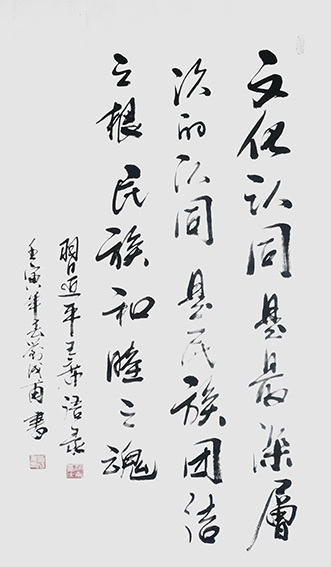 文化认同是最深層
次的认同是民族团结
之根民族和睦之魂
習近平主席语录
壬寅年春劉成甫書